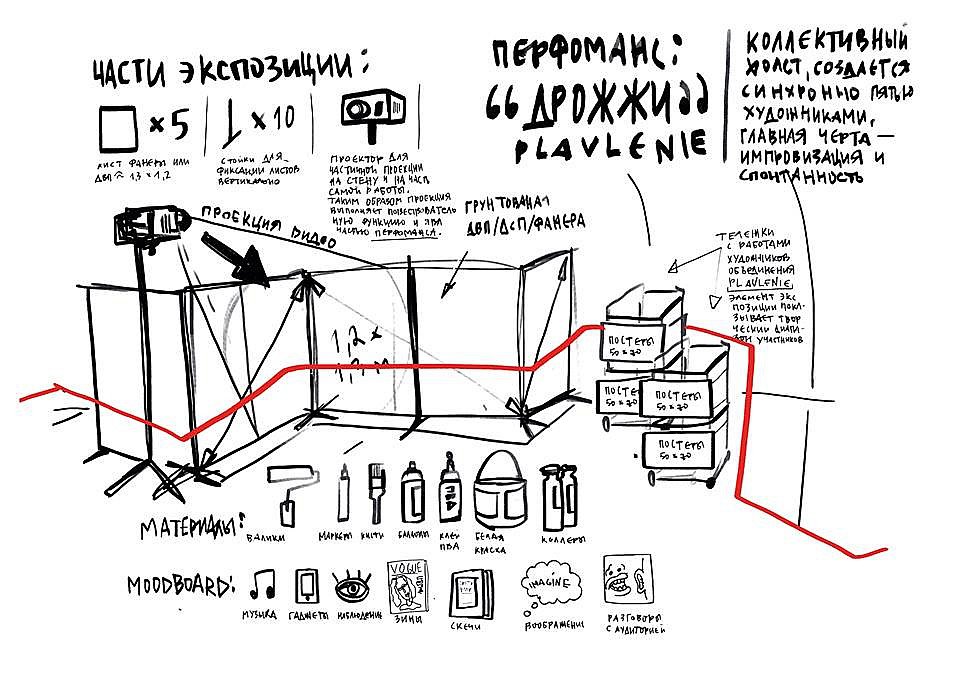 ЧАСТИ ЭКСПОЗИЦИИ:
×5
ЛИСТ ФАНЕРЫ ИЛИ
ДВП ≈ 1,3 × 1,2
×10
СТОЙКИ ДЛЯ
ФИКСАЦИИ ЛИСТОВ
ВЕРТИКАЛЬНО
ПРОЕКТОР ДЛЯ
ЧАСТИЧНОЙ ПРОЕКЦИИ
НА СТЕНУ И НА ЧАСТЬ
САМОЙ РАБОТЫ.
ТАКИМ ОБРАЗОМ ПРОЕКЦИЯ
ВЫПОЛНЯЕТ ПОВЕСТВОВАТЕЛЬ
НУЮ ФУНКЦИЮ И
ЧАСТЬЮ ПЕРФОМАНСА.
ПЕРФОМАНС:
“ДРОЖЖИ”
PLAVLENIE
КОЛЛЕКТИВНЫЙ
ХОЛСТ, СОЗДАЕТСЯ
СИНХРОННО ПЯТЬЮ
ХУДОЖНИКАМИ,
ГЛАВНАЯ ЧЕРТА —
ИМПРОВИЗАЦИЯ И
СПОНТАННОСТЬ
ПРОЕКЦИЯ ВИДЕО
ГРУНТОВАНАЯ
ДВП/ДСП/ФАНЕРА
ТЕЛЕЖКИ
С РАБОТАМИ
ХУДОЖНИКОВ
ОБЪЕДИНЕНИЯ
PLAVLENIE,
ЭЛЕМЕНТ ЭКС
ПОЗИЦИИ ПОКА-
ЗЫВАЕТ ТВОР
ЧЕСКИЙ ДИАПА-
ЗОН УЧАСТНИКОВ
1,2 ×
1,3 м
ПОСТЕРЫ
50 × 70
ПОСТЕ
50 × 70
ПОСТЕРЫ
50 × 70
ПОСТЕРЫ
50 × 70
МАТЕРИАЛЫ:
ПВА
ВАЛИКИ
МАРКЕРЫ
КИСТИ
БАЛЛОНЫ
КЛЕЙ
ПВА
БЕЛАЯ
КРАСКА
КОЛЛЕРЫ
MOODBOARD:
VOGUE
IMAGINE
МУЗЫКА
ГАДЖЕТЫ
НАБЛЮДЕНИЕ
ЗИНЫ
СКЕЧИ
ВООБРАЖЕНИЕ
РАЗГОВОРЫ
С АУДИТОРИЕЙ